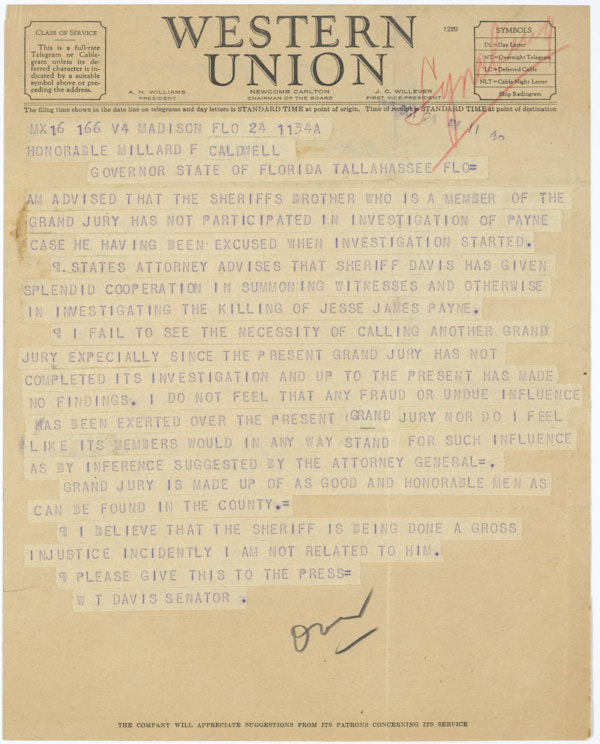 CLASS OF SERVICE
This is a full-rate
Telegram or Cable-
gram unless its de-
ferred character is in-
dicated by a suitable
symbol above or pre-
ceding the address.
WESTERN
UNION
1220
SYMBOLS
DL=Day Letter
NT=Overnight Telegram
LC=Deferred Cable
NLT=Cable Night Letter
Ship Radiogram
A. N. WILLIAMS
PRESIDENT
NEWCOMB CARLTON
CHAIRMAN OF THE BOARD
J. C. WILLEVER
FIRST VICE-PRESIDENT
The filing time shown in the date line on telegrams and day letters is STANDARD TIME at point of origin. Time of receipt is STANDARD TIME at point of destination
MX16 166 V4 MADISON FLO 24 1134A
HONORABLE MILLARD F CALDWELL
GOVERNOR STATE OF FLORIDA TALLAHASSEE FLO=
AM ADVISED THAT THE SHERIFFS BROTHER WHO IS A MEMBER OF THE
GRAND JURY HAS NOT PARTICIPATED IN INVESTIGATION OF PAYNE
CASE HE HAVING BEEN EXCUSED WHEN INVESTIGATION STARTED.
¶ STATES ATTORNEY ADVISES THAT SHERIFF DAVIS HAS GIVEN
SPLENDID COOPERATION IN SUMMONING WITNESSES AND OTHERWISE
IN INVESTIGATING THE KILLING OF JESSE JAMES PAYNE.
¶ I FAIL TO SEE THE NECESSITY OF CALLING ANOTHER GRAND
JURY EXPECIALLY SINCE THE PRESENT GRAND JURY HAS NOT
COMPLETED ITS INVESTIGATION AND UP TO THE PRESENT HAS MADE
NO FINDINGS. I DO NOT FEEL THAT ANY FRAUD OR UNDUE INFLUENCE
HAS BEEN EXERTED OVER THE PRESENT GRAND JURY NOR DO I FEEL
LIKE ITS MEMBERS WOULD IN ANY WAY STAND FOR SUCH INFLUENCE
AS BY INFERENCE SUGGESTED BY THE ATTORNEY GENERAL=.
GRAND JURY IS MADE UP OF AS GOOD AND HONORABLE MEN AS
CAN BE FOUND IN THE COUNTY.=
¶ I BELIEVE THAT THE SHERIFF IS BEING DONE A GROSS
INJUSTICE INCIDENTLY I AM NOT RELATED TO HIM.
¶ PLEASE GIVE THIS TO THE PRESS=
W T DAVIS SENATOR .
THE COMPANY WILL APPRECIATE SUGGESTIONS FROM ITS PATRONS CONCERNING ITS SERVICE